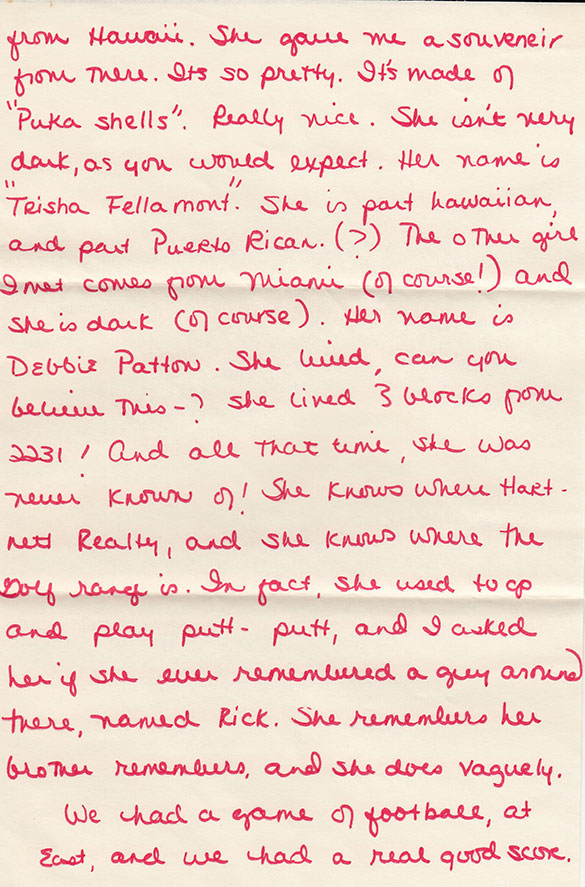 from Hawaii. She gave me a souveneir
from There. Its so pretty. It's made of
"Puka shells". Really nice. She isn't very
dark, as you would expect. Her name is
"Trisha Fellamont." She is part hawaiian,
and part Puerto Rican. (?) The other girl
I met comes from Miami (of course!) and
she is dark (of course). Her name is
Debbie Patton. She lived, can you
believe This-? she lived 3 blocks from
2231! And all that time, she was
never known of! She knows where Hart-
nett Realty, and she knows where the
Golf range is. In fact, she used to go
and play putt-putt, and I asked
her if she ever remembered a guy around
there, named Rick. She remembers her
brother remembers, and she does vaguely.
We had a game of football, at
East, and we had a real good score.